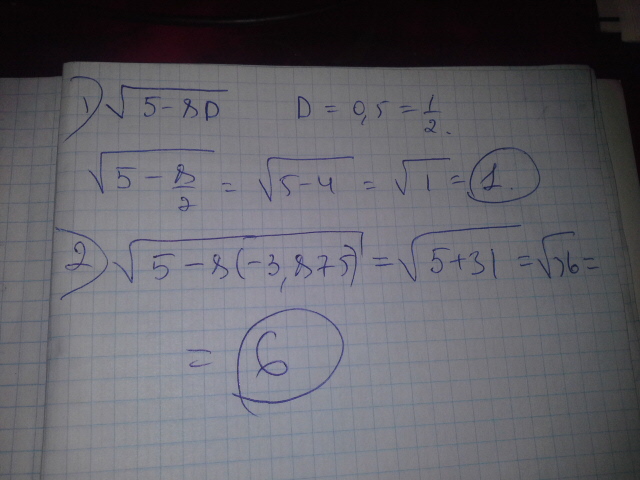 1) √(5-8D) D = 0,5 = 1/2.
√(5 - 8/2) = √(5-4) = √1 = 1.
2) √(5-8(-3,875)) = √(5+31) = √36 =
= 6